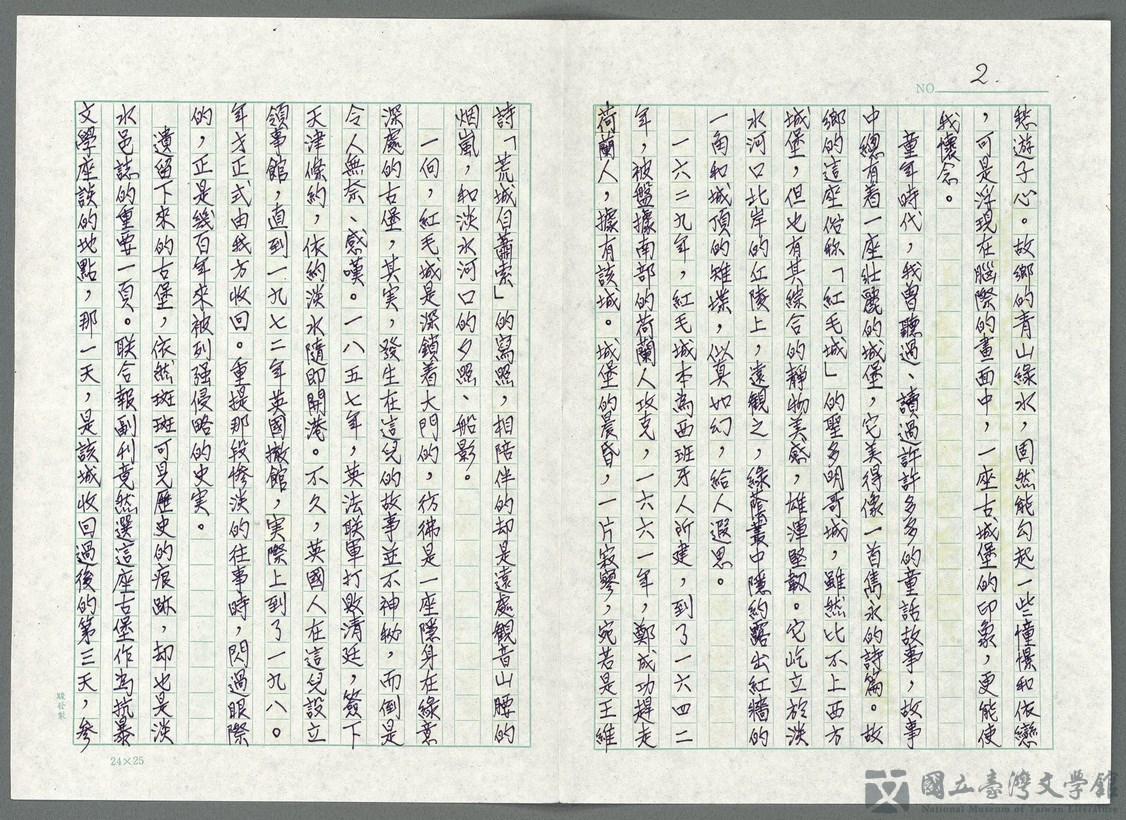 NO 2.
愁遊子心。故鄉的青山綠水，固然能勾起一些憧憬和依戀
，可是浮現在腦際的畫面中，一座古城堡的印象，更能使
我懷念。
童年時代，我曾聽過、讀過許許多多的童話故事，故事
中總有着一座壯麗的城堡，它美得像一首雋永的詩篇。故
鄉的這座俗称「紅毛城」的聖多明哥城，雖然比不上西方
城堡，但也有其綜合的靜物美感，雄渾堅韌。它屹立於淡
水河口北岸的丘陵上，遠觀之，綠蔭叢中隱約露出紅牆的
一角和城頂的雉堞，似真如幻，給人遐思。
一六二九年，紅毛城本為西班牙人所建，到了一六四二
年，被盤據南部的荷蘭人攻克，一六六一年，鄭成功趕走
荷蘭人，據有該城。城堡的晨昏，一片寂寥，宛若是王維
詩「荒城自蕭索」的寫照，相陪伴的却是遠處観音山腰的
烟嵐，和淡水河口的夕照、船影。
一向，紅毛城是深鎖着大門的，彷彿是一座隱身在綠意
深處的古堡，其実，發生在這兒的故事並不神祕，而倒是
令人無奈、感嘆。一八五七年，英法联軍打敗清廷，簽下
天津條約，依約淡水隨即開港。不久，英國人在這兒設立
領事館，直到一九七二年英國撤館，実際上到了一九八。
年才正式由我方收回。重提那段慘淡的往事時，閃過眼際
的，正是幾百年來被列强侵略的史実。
遺留下來的古堡，依然斑斑可見歷史的痕跡，却也是淡
水邑誌的重要一頁。联合報副刊竟然選這座古堡作為抗暴
文學座談的地點，那一天，是該城收回過後的第三天，參
24×25
國立臺灣文學館
National Museum of Taiwan Literature